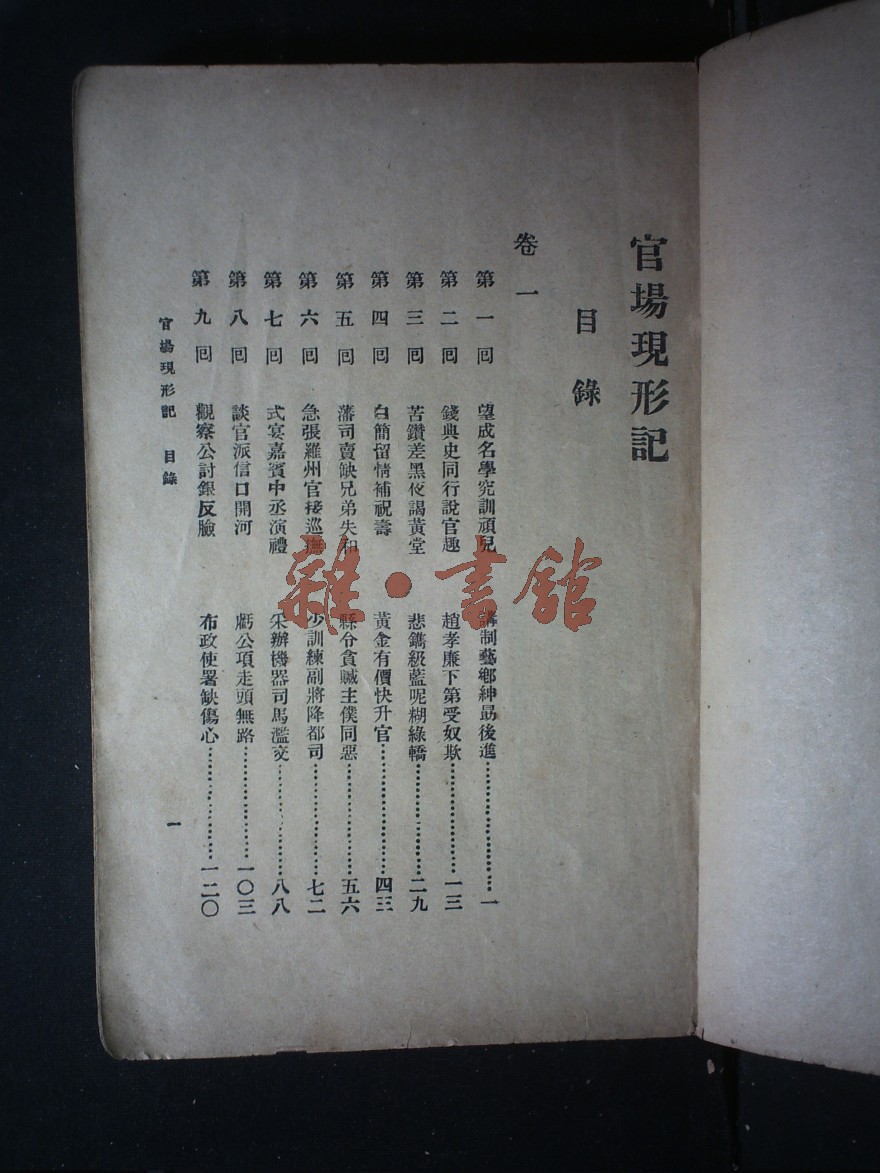 官場現形記
目錄
卷一
第一回 望成名學究訓頑兒 講制藝鄉紳勗後進……………………一
第二回 錢典史同行說官趣 趙孝廉下第受奴欺……………………一三
第三回 苦鑽差黑夜謁黃堂 悲鐫級藍呢糊綠轎……………………二九
第四回 白簡留情補祝壽 黃金有價快升官……………………四三
第五回 藩司賣缺兄弟失和 縣令貪贓主僕同惡……………………五六
第六回 急張羅州官接巡撫 少訓練副將降都司……………………七二
第七回 式宴嘉賓中丞演禮 采辦機器司馬濫交……………………八八
第八回 談官派信口開河 虧公項走頭無路……………………一〇三
第九回 觀察公討銀反臉 布政使署缺傷心……………………一二〇
官場現形記 目錄 一
雜·書館